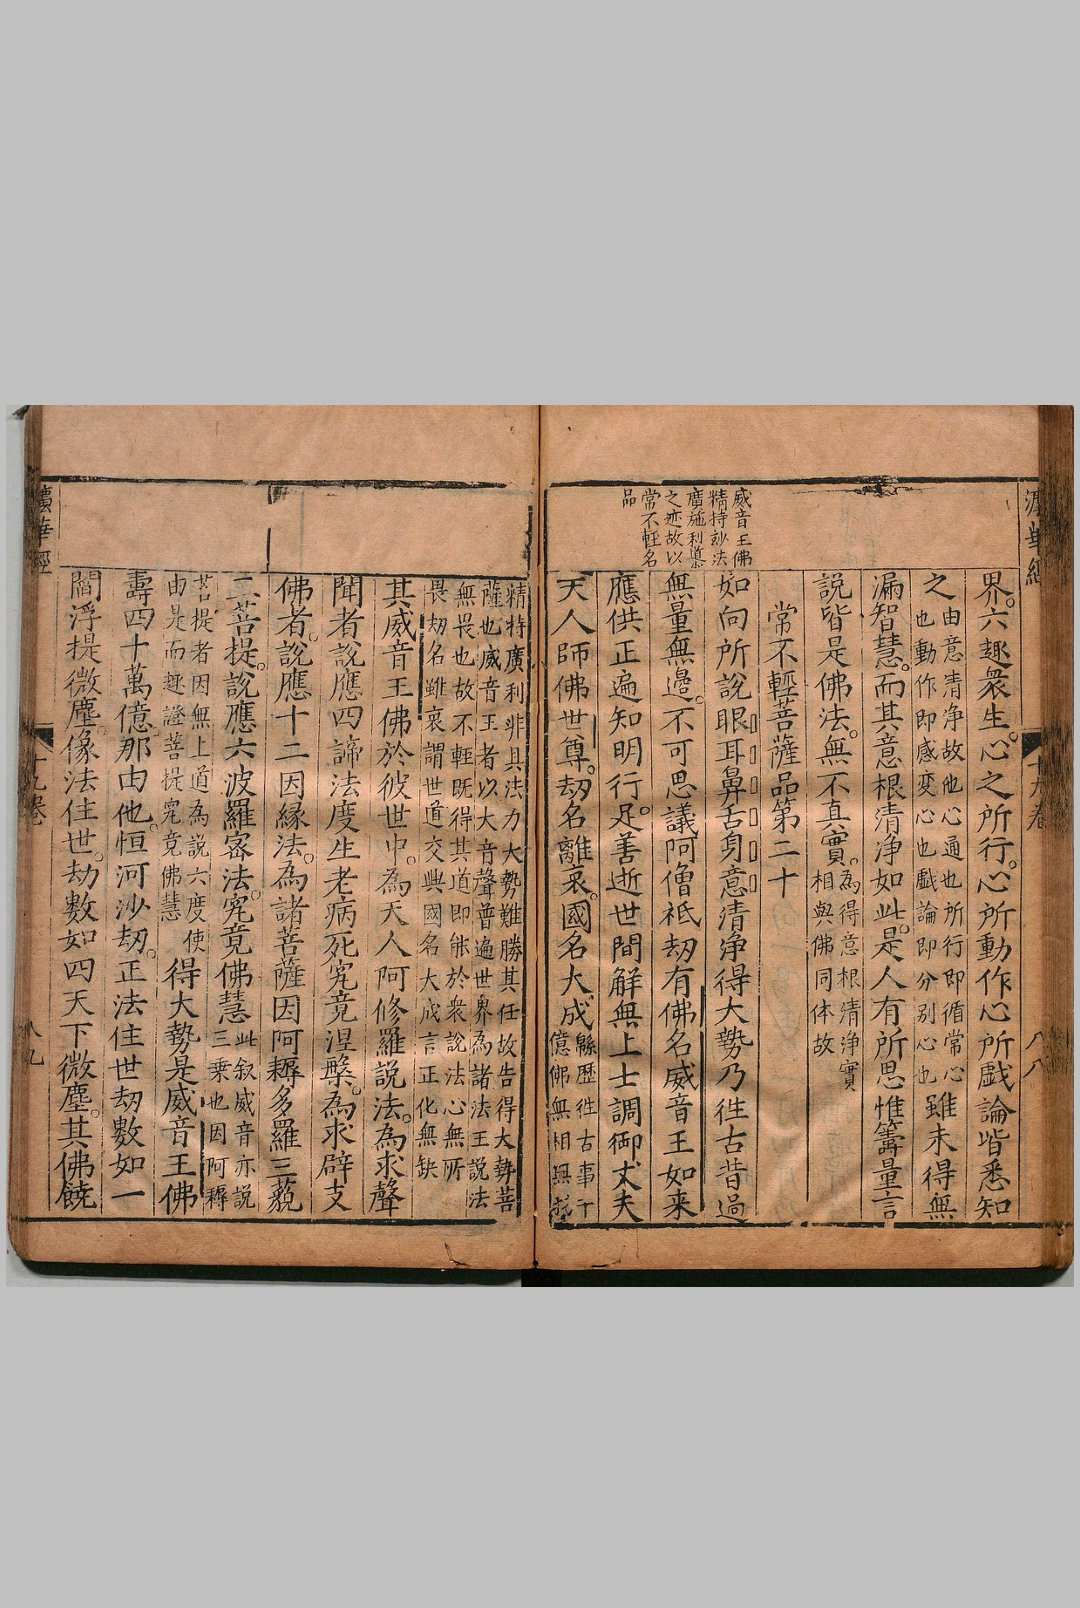 界。六趣衆生。心之所行。心所動作心所戲論皆悉知
之由意清淨故他心通也所行即循常心
也動作即感变心也戲論即分别心也雖未得無
漏智慧。而其意根清净如此。是人有所思惟籌量言
說皆是佛法。無不真實。為得意根清淨實
相與佛同体故
常不輕菩薩品第二十
威音王佛
精持妙法
廣施利導
之迹故以
常不輊名
品
如向所說眼耳鼻舌身意清淨得大勢乃徃古昔過
無量無邊。不可思議阿僧祇劫有佛名威音王如来
應供正遍知明行。足善逝世間解無上士調御丈夫
天人師佛世尊。劫名離衰。國名大成緜歷徃古事二千
億佛無相無
精特廣利非具法力大勢難勝其任故告得大勢菩
薩也威音王者以大音聲普遍世界為諸法王說法
無畏也故不輊既得其道即能於衆說法心無所
畏劫名離衰謂世道交興國名大成言正化無缺
其威音王佛於彼世中。為天人阿修羅說法。為求聲
聞者說應四諦法度生老病死究竟涅槃。為求辟支
佛者。說應十二因緣法。為諸菩薩因阿耨多羅三藐
三菩提。說應六波羅宻法。究竟佛慧此叙威音亦説
三乗也因阿耨
菩提者因無上道為説六度使
由是而趣證菩提究竟佛慧得大勢是威音王佛
壽四十萬億那由他。恒河沙劫。正法住世劫數如一
閻浮提微塵。像法住世。劫數如四天下微塵。其佛饒
十九卷
八九